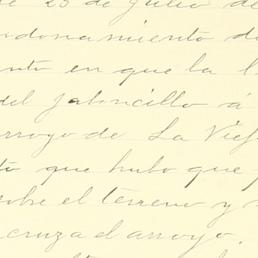 25 de Julio de
donamiento de
nto en que la l
del Jaboncillo á
arroyo de La Viej
to que hubo que p
sobre el terreno y
cruza el arroyo.